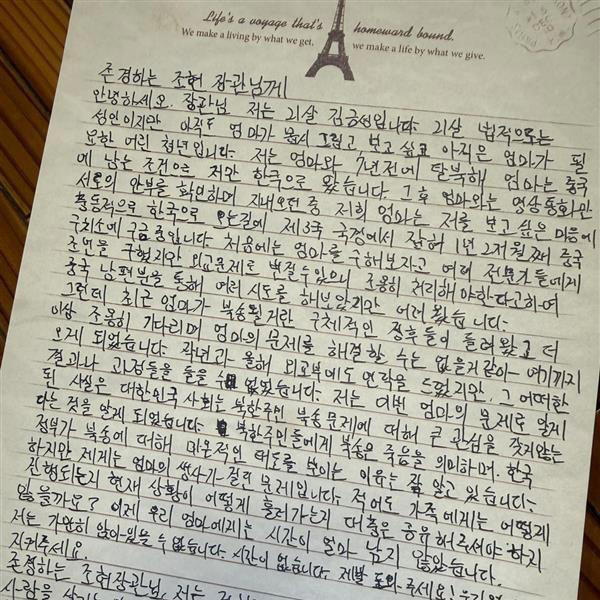 Life's a voyage that's homeward bound.
We make a living by what we get, we make a life by what we give.
존경하는 조현 장관님께
안녕하세요. 장관님 저는 21살 김금성입니다. 21살 법적으로는
성인이지만 아직도 엄마가 몹시 그립고 보고 싶고 아직은 엄마가 필
요한 어린 청년입니다. 저는 엄마와 7년전에 탈북해 엄마는 중국
에 남는 조건으로 저만 한국으로 왔습니다. 그 후 엄마와는 영상통화만
서로의 안부를 확인하며 지내오던 중 저희 엄마는 저를 보고 싶은 마음에
충동적으로 한국으로 오는길에 제3국 국경에서 잡혀 1년 2개월째 중국
구치소에 구금중입니다. 처음에는 엄마를 구해보자고 여러 전문가들에게
조언을 구했지만 외교문제로 번질수있으니 조용히 처리해야한다고하여
중국 남편분을 통해 여러 시도를 해보았지만 어려웠습니다.
그런데 최근 엄마가 북송될거란 구체적인 정후들이 들려왔고 더
이상 조용히 기다리며 엄마의 문제를 해결할 수는 없을거같아 여기까지
오게 되었습니다. 작년과 올해 외교부에도 연락을 드렸지만, 그 어떠한
결과나 과정들을 들을 수 없었습니다. 저는 이번 엄마의 문제로 알게
된 사실은 대한민국 사회는 북한주민 북송문제에 대해 큰 관심을 갖지않는
다는 것을 알게 되었습니다. 북한주민들에게 북송은 죽음을 의미하며. 한국
정부가 북송에 대해 미온적인 태도를 보이는 이유는 잘 알고 있습니다.
하지만 제게는 엄마의 생사가 걸린 문제입니다. 적어도 가족에게는 어떻게
진행되는지 현재 상황이 어떻게 흘러가는지 대충은 공유해주셔야 하지
않을까요? 이제 우리 엄마에게는 시간이 얼마 남지 않았습니다.
저는 가만히 앉아있을 수 없습니다. 시간이 없습니다. 제발 도와주세요!
지켜주세요.
존경하는 조현장관님, 저는
사람을